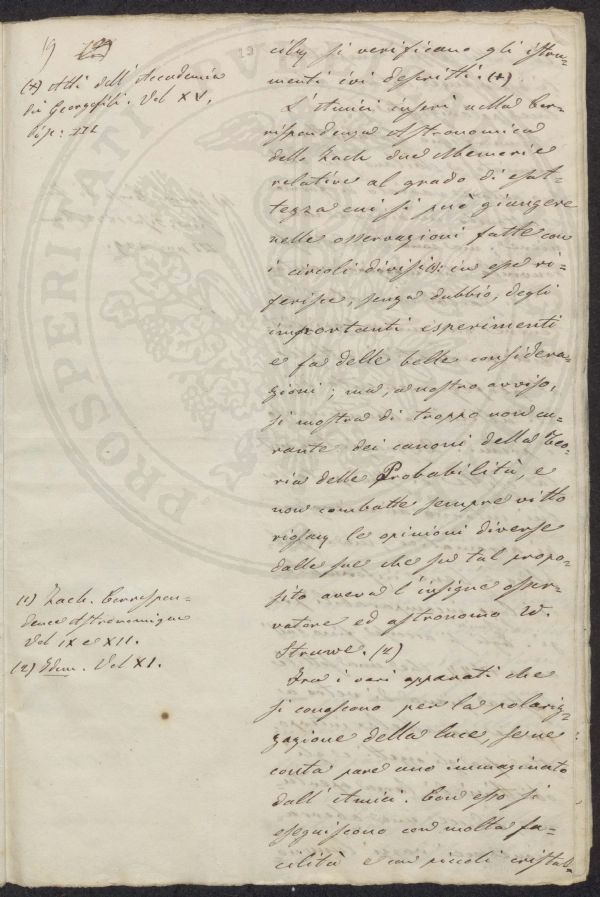 19
(+) Atti dell' Accademia
dei Georgofili. Vol XV,
disp: III
cili, si verificano gli istru-
menti ivi descritti. (+)
L'Amici inserì nella Cor-
rispondenza Astronomica
dello Zach due Memorie
relative al grado di esat-
tezza cui si può giungere
nelle osservazioni fatte con
i circoli divisi(1): in esse ri-
ferisce, senza dubbio, degli
importanti esperimenti
e fa delle belle considera-
zioni; ma, a nostro avviso,
si mostra di troppo noncu-
rante dei canoni della Teo-
ria delle Probabilità, e
non combatte sempre vitto
riosam le opinioni diverse
dalle sue che su tal propo-
sito aveva l'insigne osser-
vatore ed astronomo W.
Struwe. (2)
(1) Zach. Correspon-
dence Astronomique
Vol IX e XII.
(2) Idem. Vol XI.
Fra i vari apparati che
si conoscono per la polariz-
zazione della luce, se ne
conta pure uno immaginato
dall' Amici. Con esso si
eseguiscono con molta fa-
cilità e con piccoli cristal-
PROSPERITATI